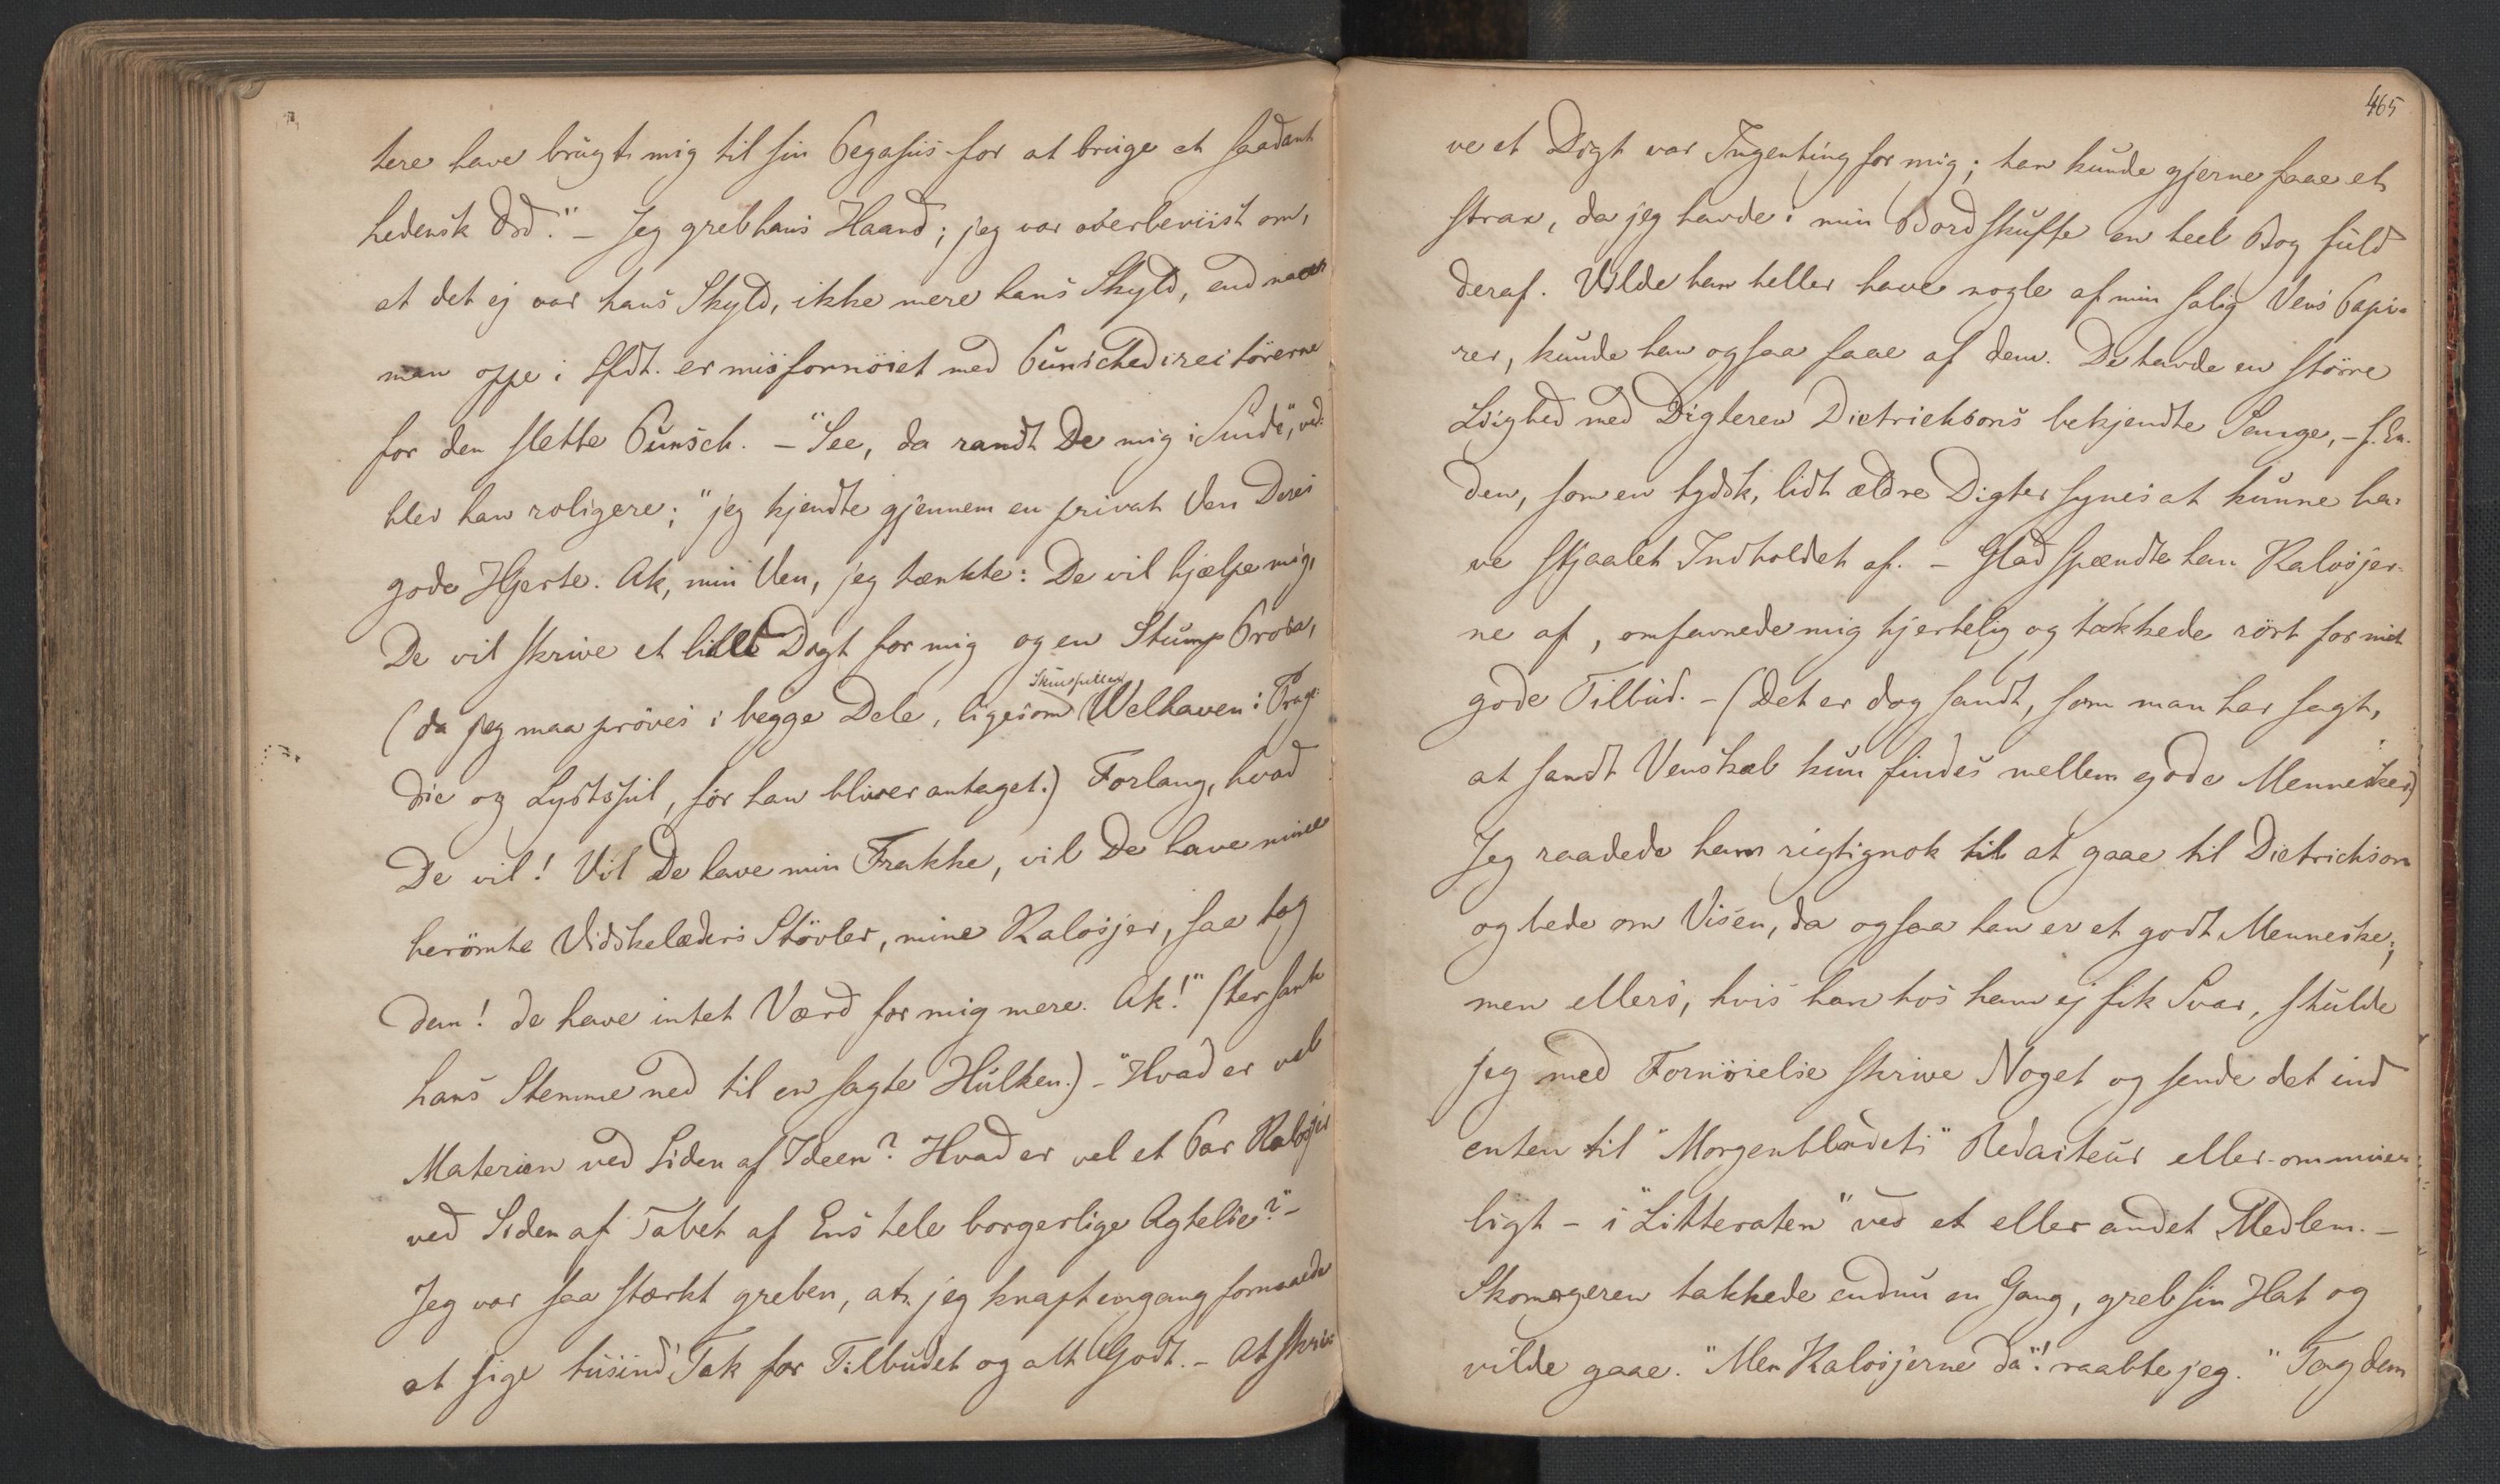 tere have brugt mig til sin Pegasus for at bruge et saadant
hedensk Ord." – Jeg greb hans Haand; jeg var overbeviist om,
at det ej var hans Skyld, ikke mere hans Skyld, end naar
man oppe i Sfdt. er misfornöiet med Punschedirectörerne
for den slette Punsch. – "See, da randt De mig i Sinde", ved-
blev han roligere; "jeg kjendte gjennem en privat Ven Deres
gode Hjerte. Ak, min Ven, jeg tænkte: De vil hjælpe mig,
De vil skrive et lidet Digt for mig og en Stump Prosa,
(da jeg maa pröves i begge Dele, ligesom Skuespiller Welhaven i Tragø-
die og Lystspil, för han bliver antaget.) Forlang, hvad
De vil! Vil De have min Frakke, vil De have mine
berömte Vidskelæders Stövler, mine Kalosjer, saa tag
dem! de have intet Værd for mig mere. Ak!" (her sank
hans Stemme ned til en sagte Hulken.) – "Hvad er vel
Materien ved Siden af Ideen? Hvad er vel et Par Kalosjer
ved Siden af Tabet af Ens hele borgerlige Agtelse?" –
Jeg var saa stærkt greben, at jeg knapt engang formaaede
at sige tusind Tak for Tilbudet og alt Godt. – At skri-
465
ve et Digt var Ingenting for mig; han kunde gjerne faae et
strax, da jeg havde i min Bordskuffe en heel Bog fuld
deraf. Vilde han heller have nogle af min salig Vens Papi-
rer, kunde han ogsaa faae af dem. De havde en större
Lighed med Digteren Dietrichsons bekjendte Sange, – f. Ex.
den, som en tydsk, lidt ældre Digter synes at kunne ha-
ve stjaalet Indholdet af. – Glad spændte han Kalosjer-
ne af, omfavnede mig hjertelig og takkede rört for mit
gode Tilbud. – (Det er dog sandt, som man har sagt,
at sandt Venskab kun findes mellem gode Mennesker)
Jeg raadede ham rigtignok til at gaae til Dietrichson
og bede om Visen, da ogsaa han er et godt Menneske;
men ellers, hvis han hos ham ej fik Svar, skulde
jeg med Fornöielse skrive Noget og sende det ind
enten til "Morgenbladets" Redacteur eller – om muligt
ligt – i "Litteraten" ved et eller andet Medlem. –
Skomageren takkede endnu en Gang, greb sin Hat og
vilde gaae. "Men Kalosjerne da"! raabte jeg. "Tag dem